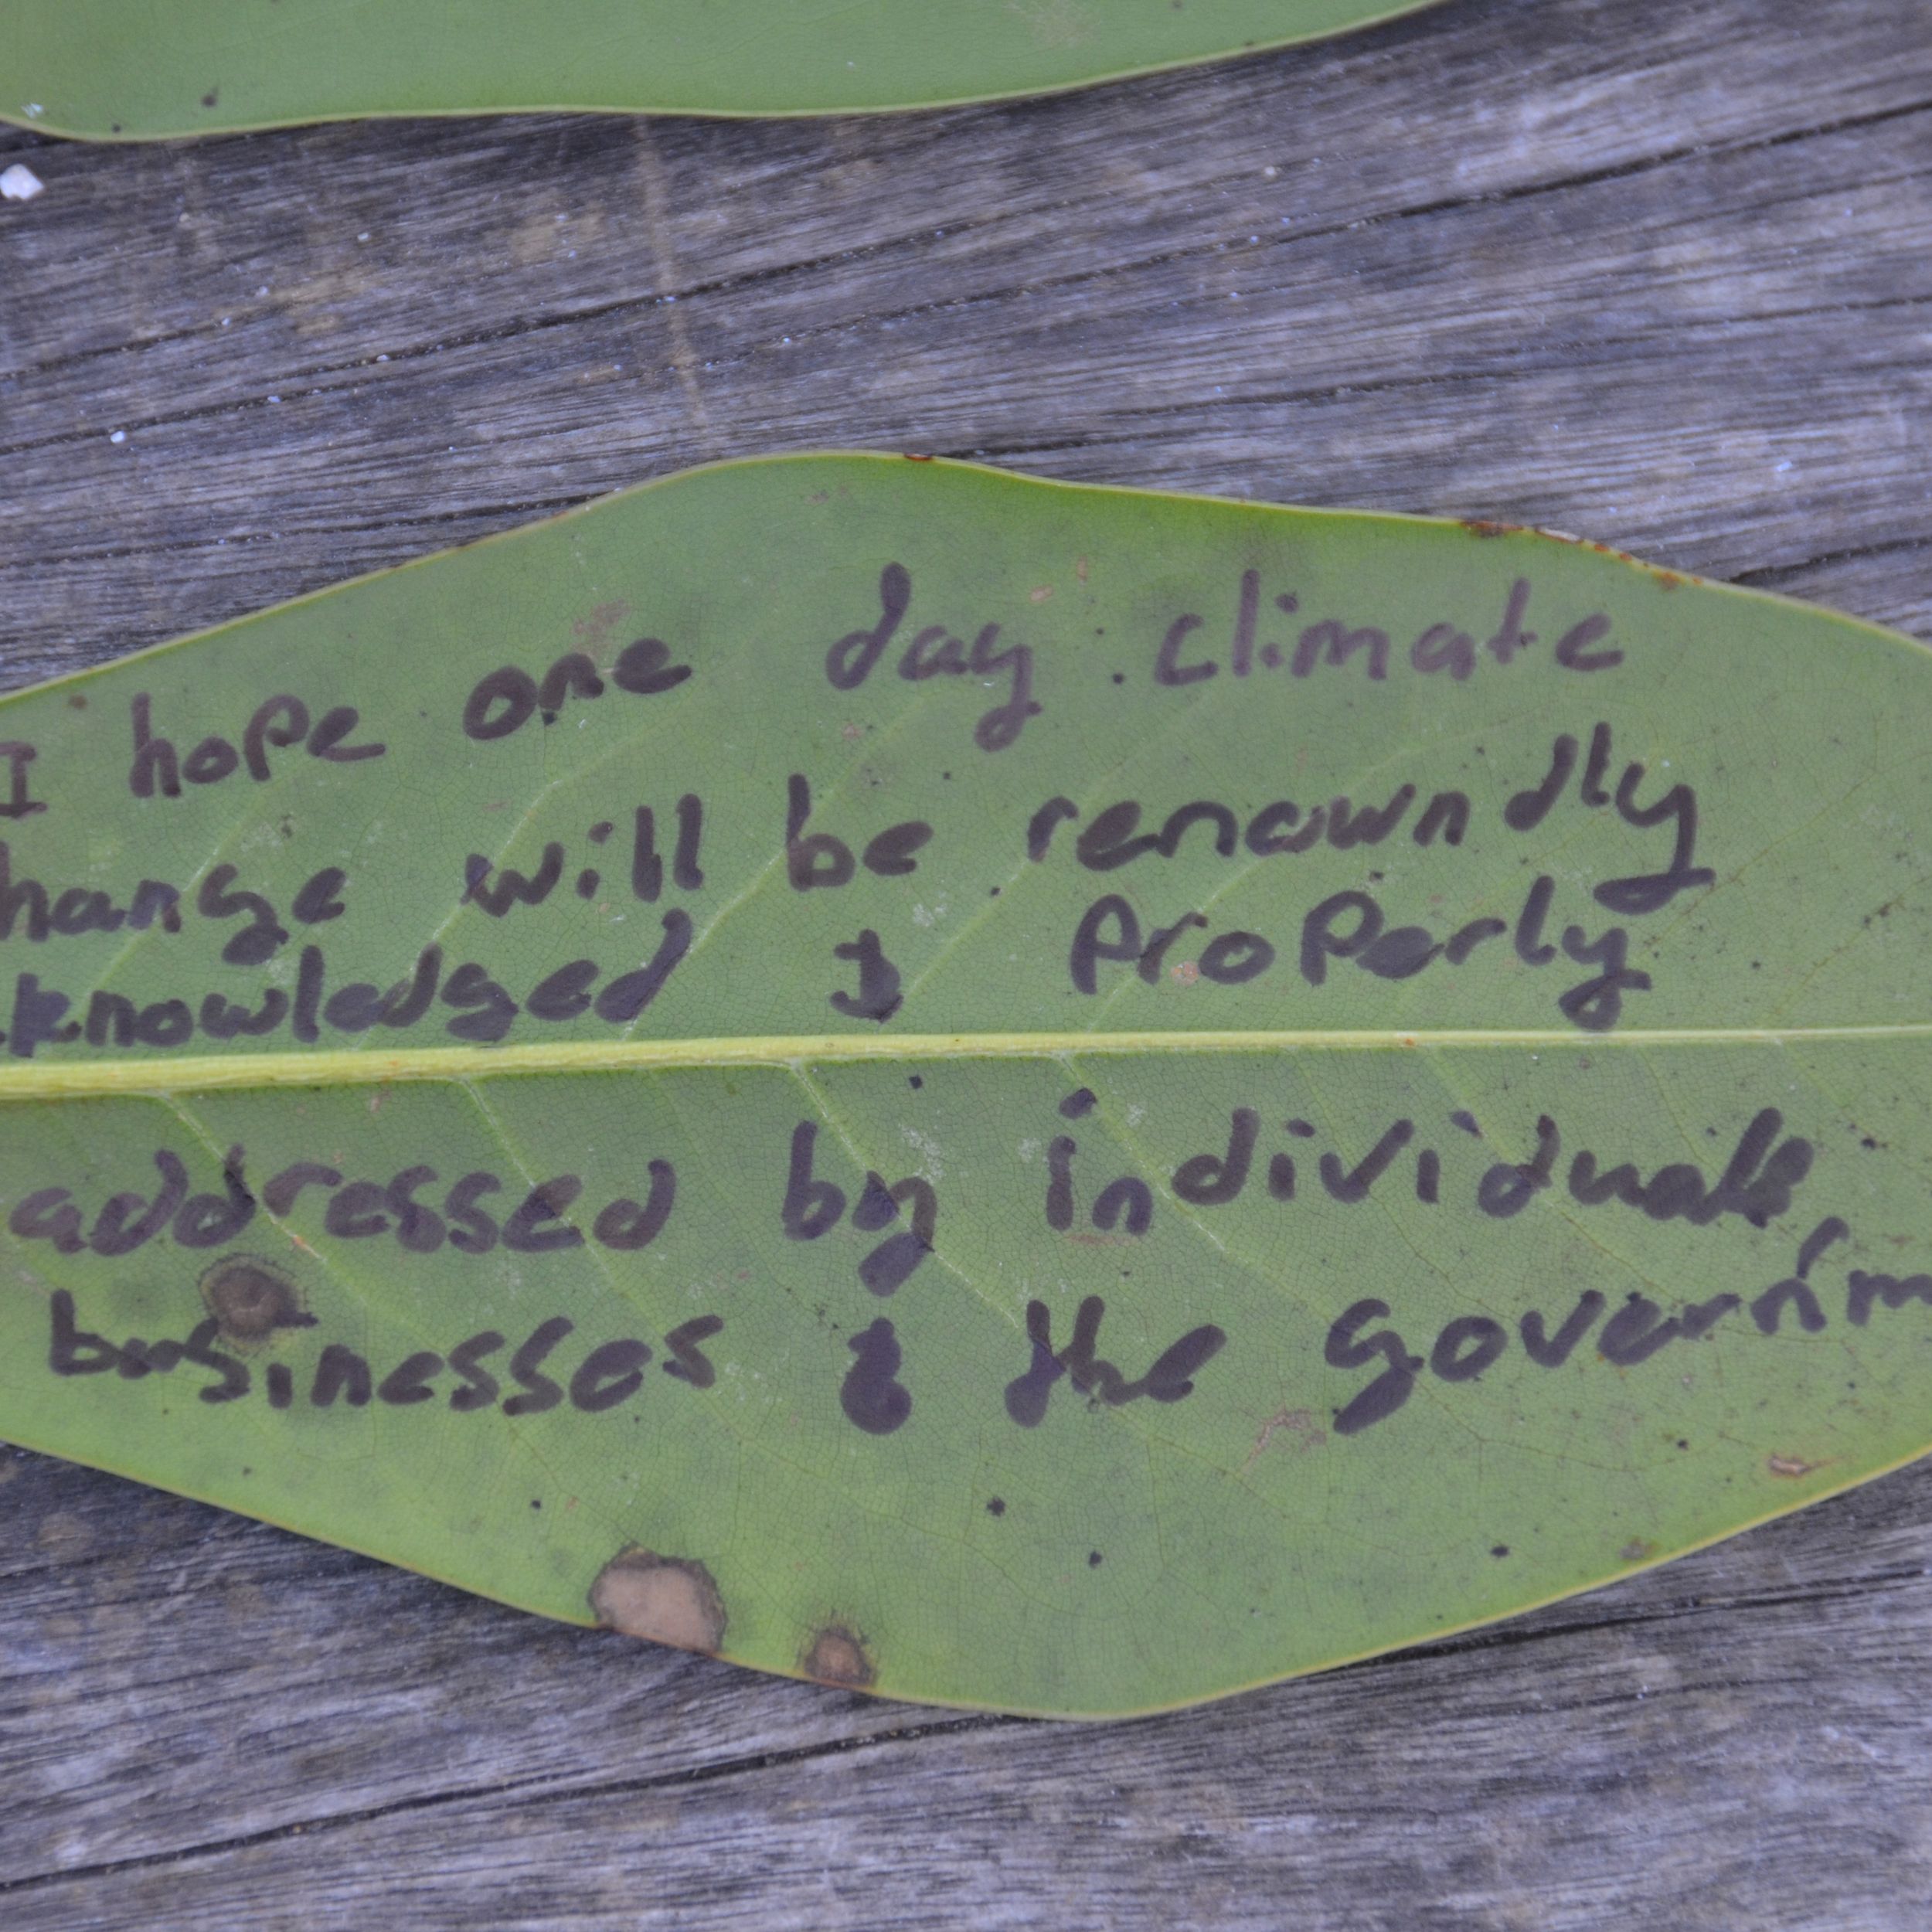 I hope one day climate
hange will be renowndly
knowledged & Properly
addressed by individuals,
businesses & the governm